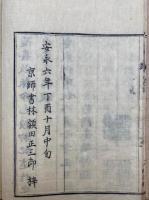 安永六年丁酉十月中旬
京師書林額田正三郎梓